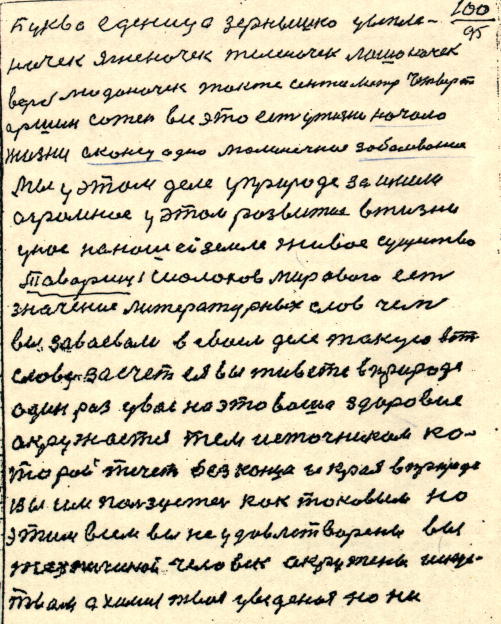 100
95
Буква еденица зернышко цыпле-
ночек ягненочек теленочек лошоночек
верб людоночек такте сентиметр Четверт
аршин сотен вы это есть у жизни начало
жизни сконец одно молинечное заболевание
Мы у этом деле у природе заимели
огромное у этом развитие в жизни
у нас на нашей земле живое существо
Товарищ Шолохов мирового ест
значение литературных слов чем
вы заваевали в своем деле такую вот
слову засчет ея вы живете в природе
один раз у вас на это ваша здоровие
акружается тем источником ко-
торой течет без конца и края в природе
вы им пользуетес как таковым но
этим всем вы не удовлетворены вы
техничиной человек акружены искус-
твам а химия твоя уведеноя но ни